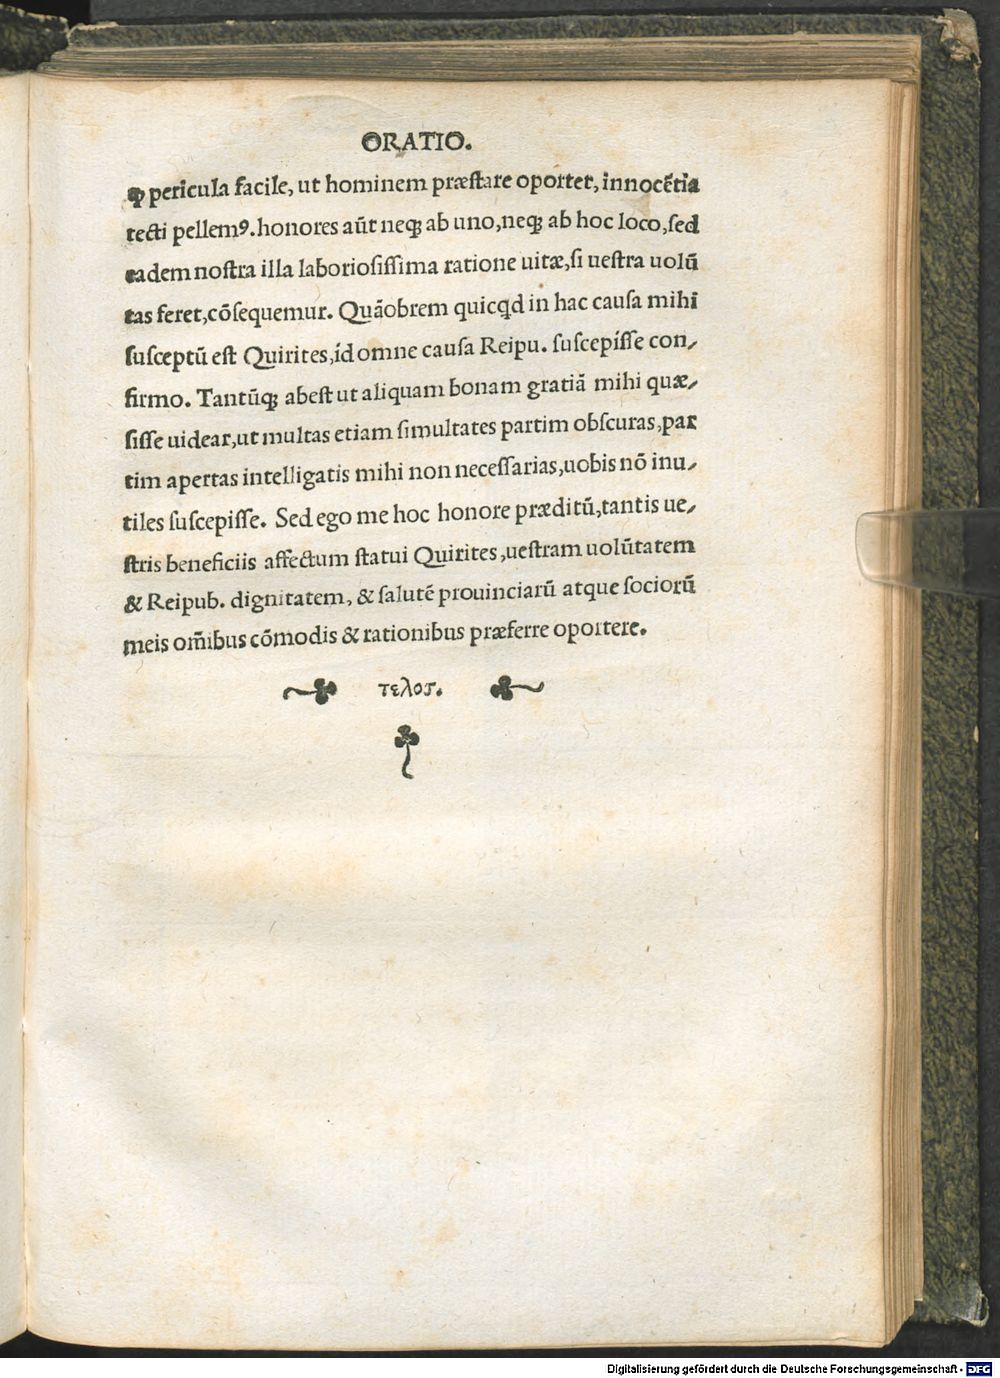 ORATIO.
ꝙ pericula facile, ut hominem præstare oportet, innocētia
tecti pellemꝰ. honores aūt neqꝫ ab uno, neqꝫ ab hoc loco, sed
eadem nostra illa laboriosissima ratione uitæ, si uestra uolū
tas feret, cōsequemur. Quāobrem quicqd in hac causa mihi
susceptū est Quirites, id omne causa Reipu. suscepisse con-
firmo. Tantūqꝫ abest ut aliquam bonam gratiā mihi quæ-
sisse uidear, ut multas etiam simultates partim obscuras, par
tim apertas intelligatis mihi non necessarias, uobis nō inu-
tiles suscepisse. Sed ego me hoc honore præditū, tantis ue-
stris beneficiis affectum statui Quirites, uestram uolūtatem
& Reipub. dignitatem, & salutē prouinciarū atque sociorū
meis om̄ibus cōmodis & rationibus præferre oportere.
τελος.
Digitalisierung gefördert durch die Deutsche Forschungsgemeinschaft - DFG